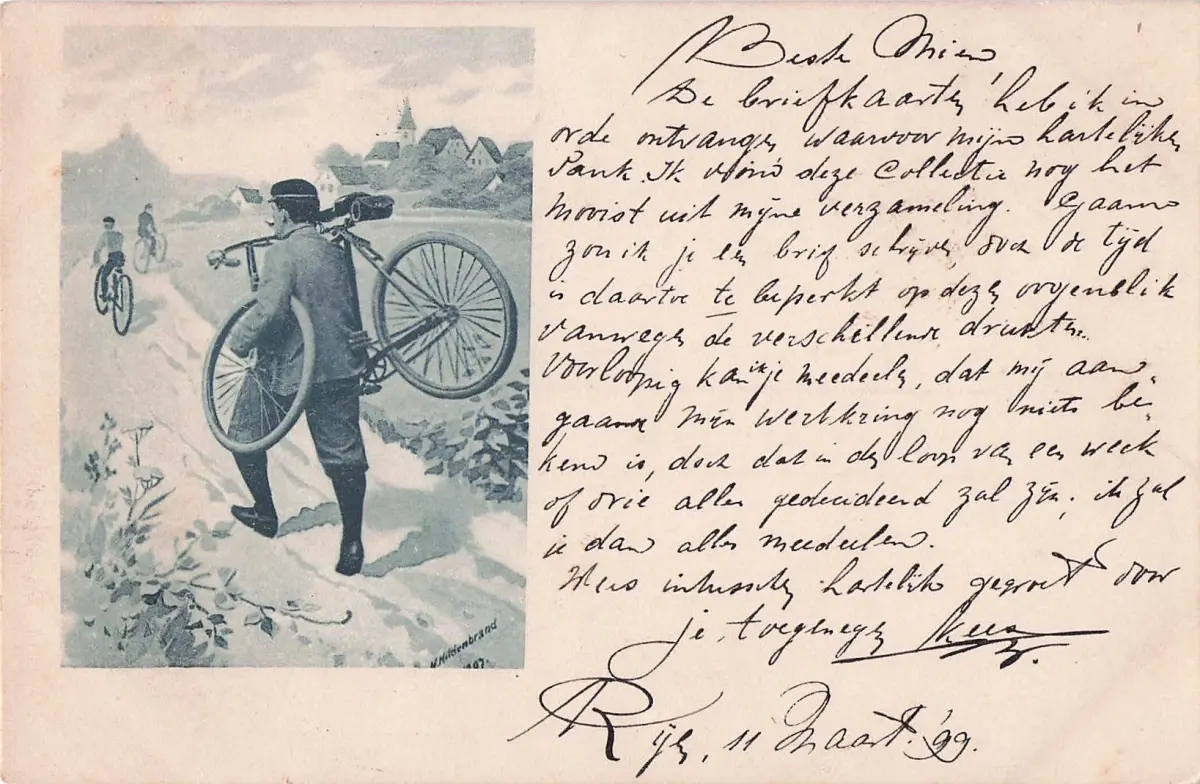 Beste Mien
De briefkaarten heb ik in
orde ontvangen waarvoor mijn hartelijken
Dank. Ik vond deze Collectie nog het
mooist uit mijne verzameling. Gaarne
zou ik je een brief schrijven doch de tijd
is daartoe te beperkt op dezen oogenblik
vanwege de verschillende drukten.
Voorloopig kan ik je meedeelen, dat mij aan-
gaande mijn werkkring nog niets be-
kend is, doch dat in den loop van een week
of drie alles gedecideerd zal zijn; ik zal
je dan alles meedeelen.
Wees intusschen hartelijk gegroet door
je toegenegen Kees
Rijen, 11 Maart '99.
Hildenbrand
1897.